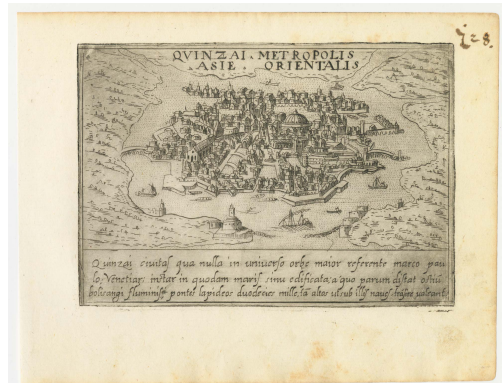 228.
QVINZAI . METROPOLIS
ASIE . ORIENTALIS
Quinzai civitas qua nulla in universo orbe maior referente marco pau
lo, Venetiar instar in quodam maris sinu edificata; a quo parum distat ostiū
polisangi fluminis pontes lapideos duodecies mille, tā altos ut sub illis naves transire valeant